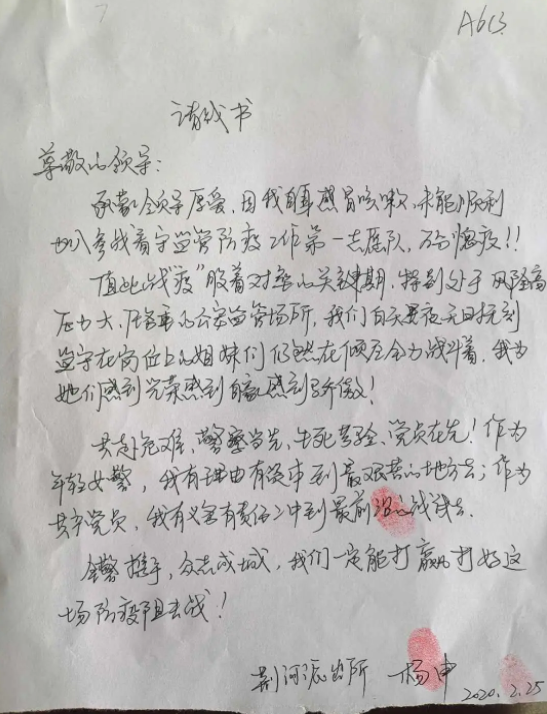 A6B
请战书
尊敬的领导:
承蒙领导厚爱,因我自身感冒咳嗽,未能顺利
加入参战看守监管防疫工作第一志愿队,万分愧疚!!
值此战"疫"胶着对垒的关键期,特别处于风险高
压力大、任务重的公安监管场所,我们白天黑夜无日无刻
坚守在岗位上的姐妹们仍然在倾尽全力战斗着,我为
她们感到光荣感到自豪感到骄傲!
共赴危难,警察当先,生死考验,党员在先!作为
年轻女警,我有理由有到最艰苦的地方去;作为
共产党员,我有义务有责任到最前沿战
全警携手,众志成城,我们一定能打赢打好这
场防疫阻击战!
荆河派出所 杨申
2020.2.25